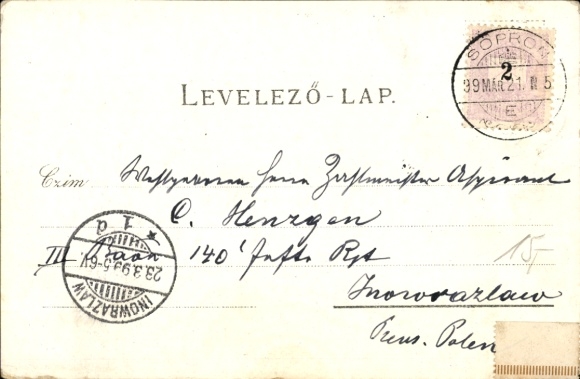 SOPRON
2
99 MÁR. 21. N 5
E
LEVELEZŐ-LAP.
Czim Herrn Zahlmeister Aspirant
C. Henzgen
III 140' Inftr Rgt
Inowrazlaw
Preus. Polen
15,-
1
d
23.3.99. 5-6N.
INOWRAZLAW